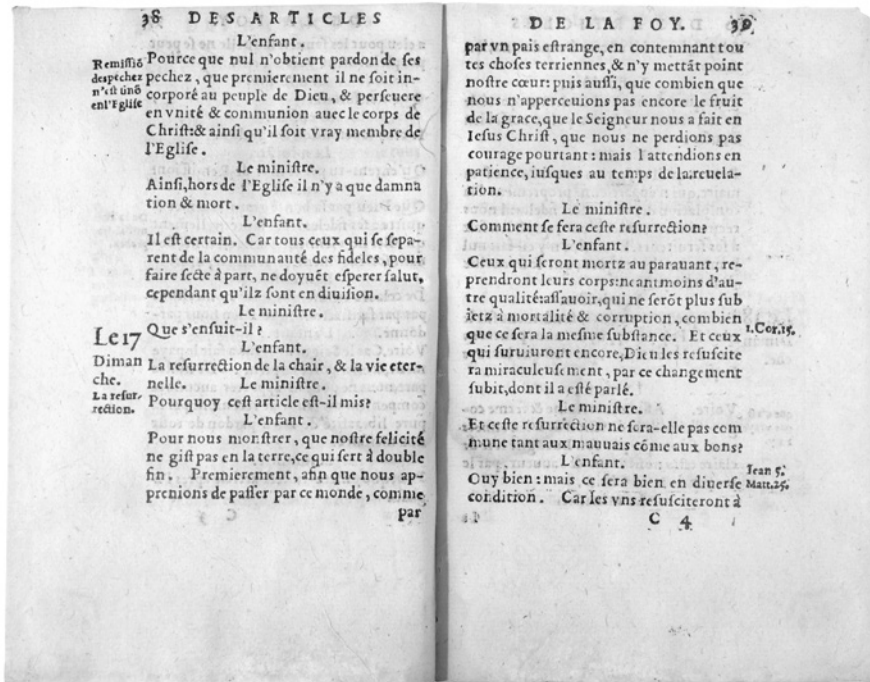 38 DES ARTICLES
L'enfant.
Remiſſiō
des pechez
n'eſt ſinō
en l'Egliſe
Pource que nul n'obtient pardon de ſes
pechez, que premierement il ne ſoit in-
corporé au peuple de Dieu, & perſeuere
en vnité & communion auec le corps de
Chriſt: & ainſi qu'il ſoit vray membre de
l'Egliſe.
Le miniſtre.
Ainſi, hors de l'Egliſe il n'y a que damna
tion & mort.
L'enfant.
Il eſt certain. Car tous ceux qui ſe ſepa-
rent de la communauté des fideles, pour
faire ſecte à part, ne doyuēt eſperer ſalut,
cependant qu'ilz ſont en diuiſion.
Le miniſtre.
Le 17
Diman
che.
La reſur-
rection.
Que s'enſuit-il?
L'enfant.
La reſurrection de la chair, & la vie eter-
nelle. Le miniſtre.
Pourquoy ceſt article eſt-il mis?
L'enfant.
Pour nous monſtrer, que noſtre felicité
ne giſt pas en la terre, ce qui ſert à double
fin. Premierement, afin que nous ap-
prenions de paſſer par ce monde, comme
par
DE LA FOY. 39
par vn pais eſtrange, en contemnant tou
tes choſes terriennes, & n'y mettāt point
noſtre cœur: puis auſſi, que combien que
nous n'apperceuions pas encore le fruit
de la grace, que le Seigneur nous a fait en
Ieſus Chriſt, que nous ne perdions pas
courage pourtant: mais l'attendions en
patience, iuſques au temps de la reuela-
tion.
Le miniſtre.
Comment ſe fera ceſte reſurrection?
L'enfant.
Ceux qui ſeront mortz au parauant, re-
prendront leurs corps: neantmoins d'au-
tre qualité: aſſauoir, qui ne ſerōt plus ſub
ietz à mortalité & corruption, combien
que ce ſera la meſme ſubſtance. Et ceux
1. Cor. 15.
qui ſuruiuront encore, Dieu les reſuſcite
ra miraculeuſement, par ce changement
ſubit, dont il a eſté parlé.
Le miniſtre.
Et ceſte reſurrection ne ſera-elle pas com
mune tant aux mauuais cōme aux bons?
L'enfant.
Iean 5.
Matt. 25.
Ouy bien: mais ce ſera bien en diuerſe
condition. Car les vns reſuſciteront à
C 4